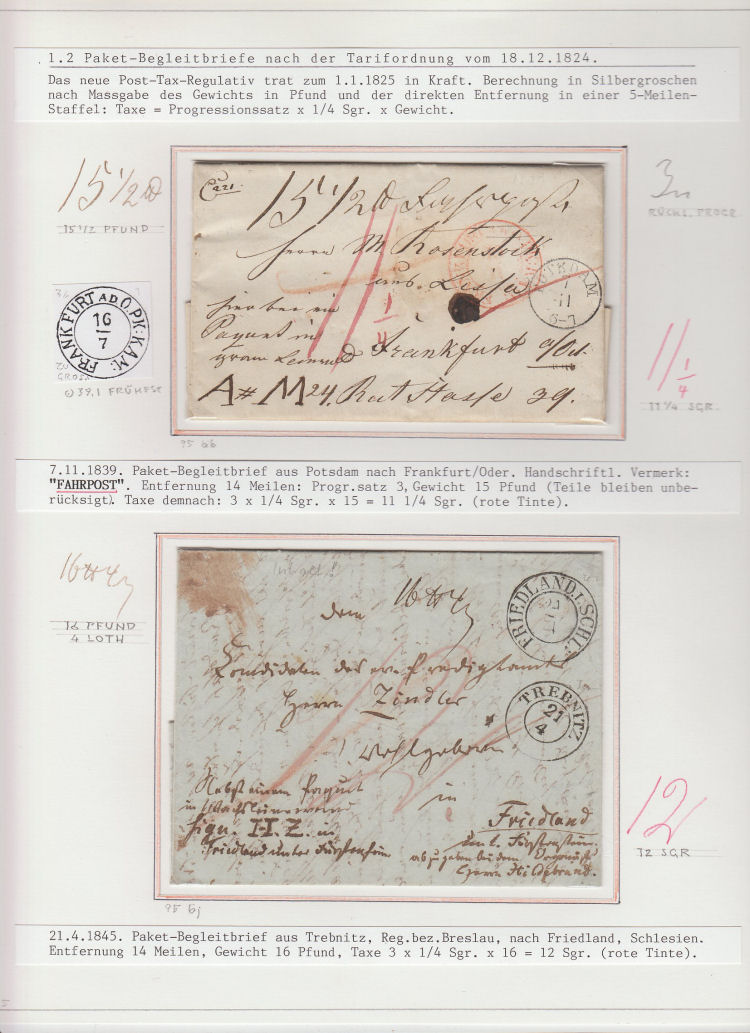 1.2 Paket-Begleitbriefe nach der Tarifordnung vom 18.12.1824.
Das neue Post-Tax-Regulativ trat zum 1.1.1825 in Kraft. Berechnung in Silbergroschen
nach Massgabe des Gewichts in Pfund und der direkten Entfernung in einer 5-Meilen-
Staffel: Taxe = Progressionssatz x 1/4 Sgr. x Gewicht.
15 1/2
15 1/2 PFUND
FRANKFURT A D O. PK: KAM:
16
7
39,1
15 1/2
Herrn M Rosenstock
aus Lissa
hierbei ein
Paquet in
grau Leinwand
Frankfurt a/Od.
A # M 24.
39.
POTSDAM
7
11
6-7
11 1/4
3
RÜCKL. PROGR.
11 1/4
11 1/4 SGR.
7.11.1839. Paket-Begleitbrief aus Potsdam nach Frankfurt/Oder. Handschriftl. Vermerk:
"FAHRPOST". Entfernung 14 Meilen: Progr.satz 3, Gewicht 15 Pfund (Teile bleiben unbe-
rücksigt). Taxe demnach: 3 x 1/4 Sgr. x 15 = 11 1/4 Sgr. (rote Tinte).
16 PFUND
4 LOTH
dem
Kandidaten des ev. Predigtamts
Herrn Zindler
Wohlgeboren
in
Nebst einem Paquet
in Wachsleinewand
Sign. H. Z. in
Friedland unter Fürstenstein
Friedland
abzugeben bei dem
Herrn Hildebrand.
FRIEDLAND I. SCHL.
TREBNITZ
21
4
12
12 SGR
21.4.1845. Paket-Begleitbrief aus Trebnitz, Reg.bez.Breslau, nach Friedland, Schlesien.
Entfernung 14 Meilen, Gewicht 16 Pfund, Taxe 3 x 1/4 Sgr. x 16 = 12 Sgr. (rote Tinte).